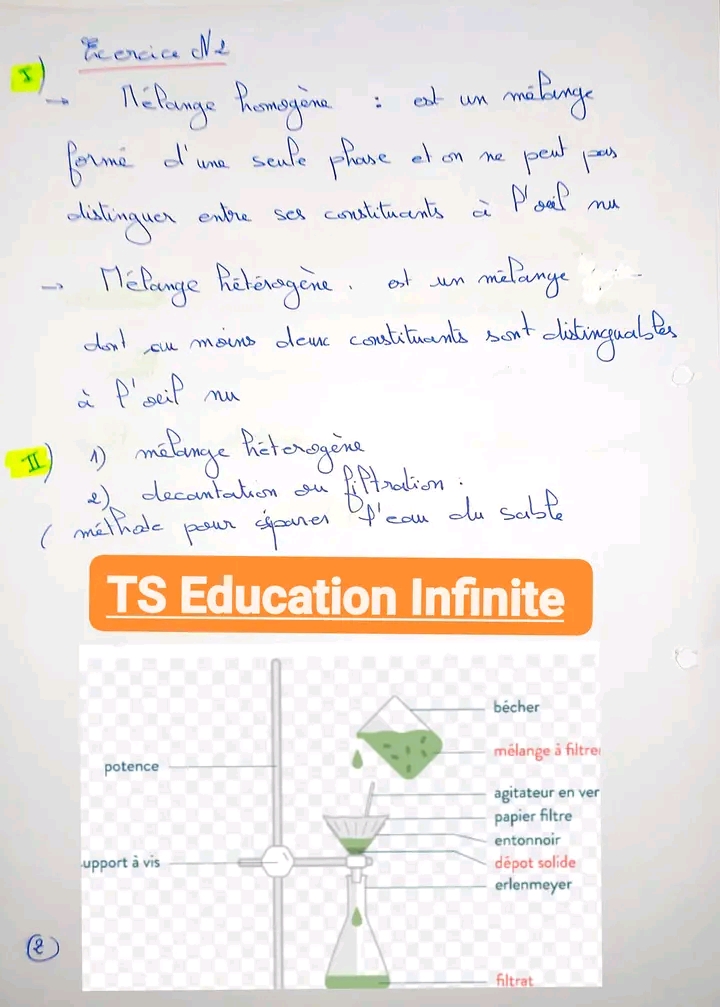 Exercice N2
I)
→ Mélange homogène : est un mélange
formé d'une seule phase et on ne peut pas
distinguer entre ses constituants à l'oeil nu
→ Mélange hétérogène . est un mélange
dont au moins deux constituants sont distinguables
à l'oeil nu
II) 1) mélange héterogène
2) decantation ou filtration :
( méthode pour séparer l'eau du sable
TS Education Infinite
bécher
mélange à filtre
potence
agitateur en ver
papier filtre
entonnoir
upport à vis
dépot solide
erlenmeyer
filtrat
2